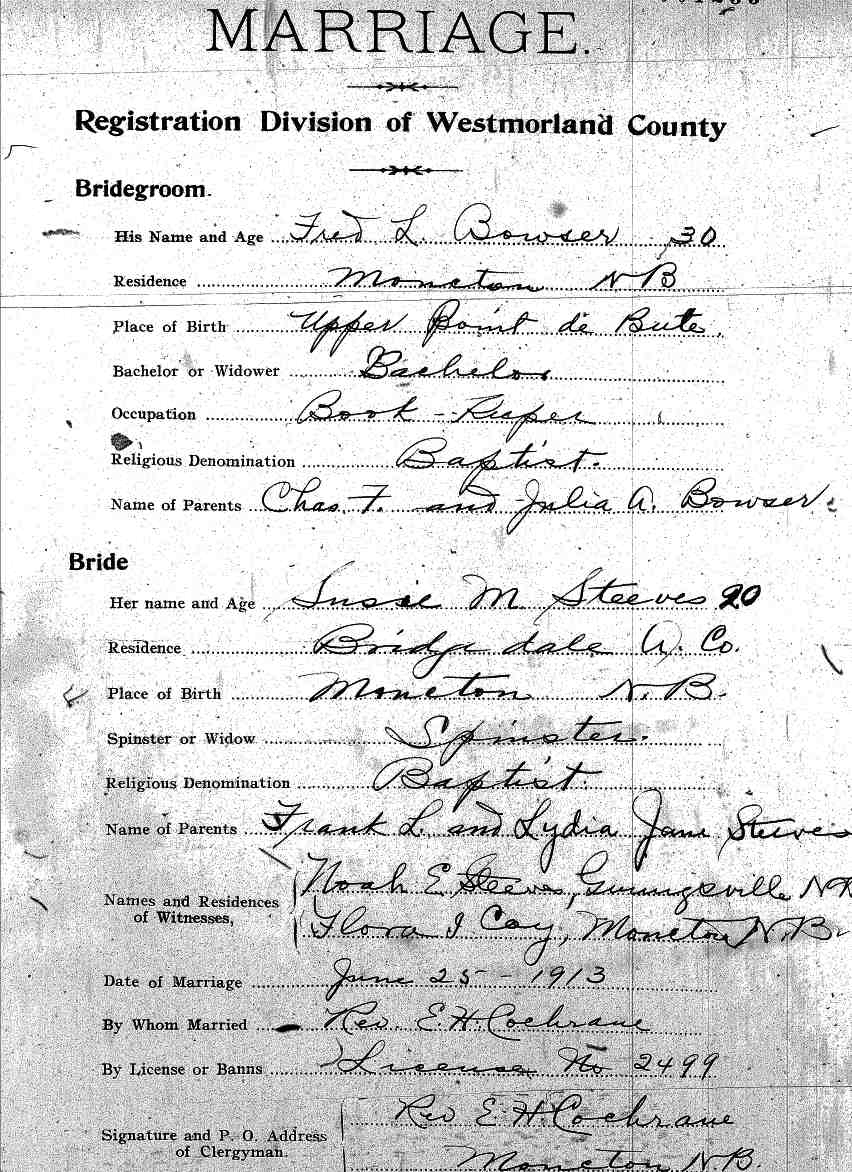 MARRIAGE.
Registration Division of Westmorland County
Bridegroom.
His Name and Age Fred L. Bowser 30
Residence Moncton N B
Place of Birth Upper Point de Bute.
Bachelor or Widower Bachelor
Occupation Book-Keeper
Religious Denomination Baptist.
Name of Parents Chas. F. and Julia A. Bowser.
Bride
Her name and Age Susie M Steeves 20
Residence Bridgedale A. Co.
Place of Birth Moncton N.B.
Spinster or Widow Spinster.
Religious Denomination Baptist.
Name of Parents Frank L. and Lydia Jane Steeves
Names and Residences of Witnesses,
Noah E Steeves, NB
Flora I Coy, Moncton N.B.
Date of Marriage June 25 - 1913
By Whom Married Rev. E.H. Cochrane
By License or Banns License No 2499
Signature and P. O. Address of Clergyman.
Rev E H Cochrane
Moncton N.B.